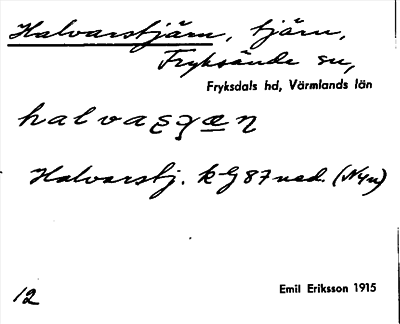 Halvarstjärn, tjärn,
Fryksände sn,
Fryksdals hd, Värmlands län
Halvarstj. kG 87 ned. (Nyn)
12
Emil Eriksson 1915